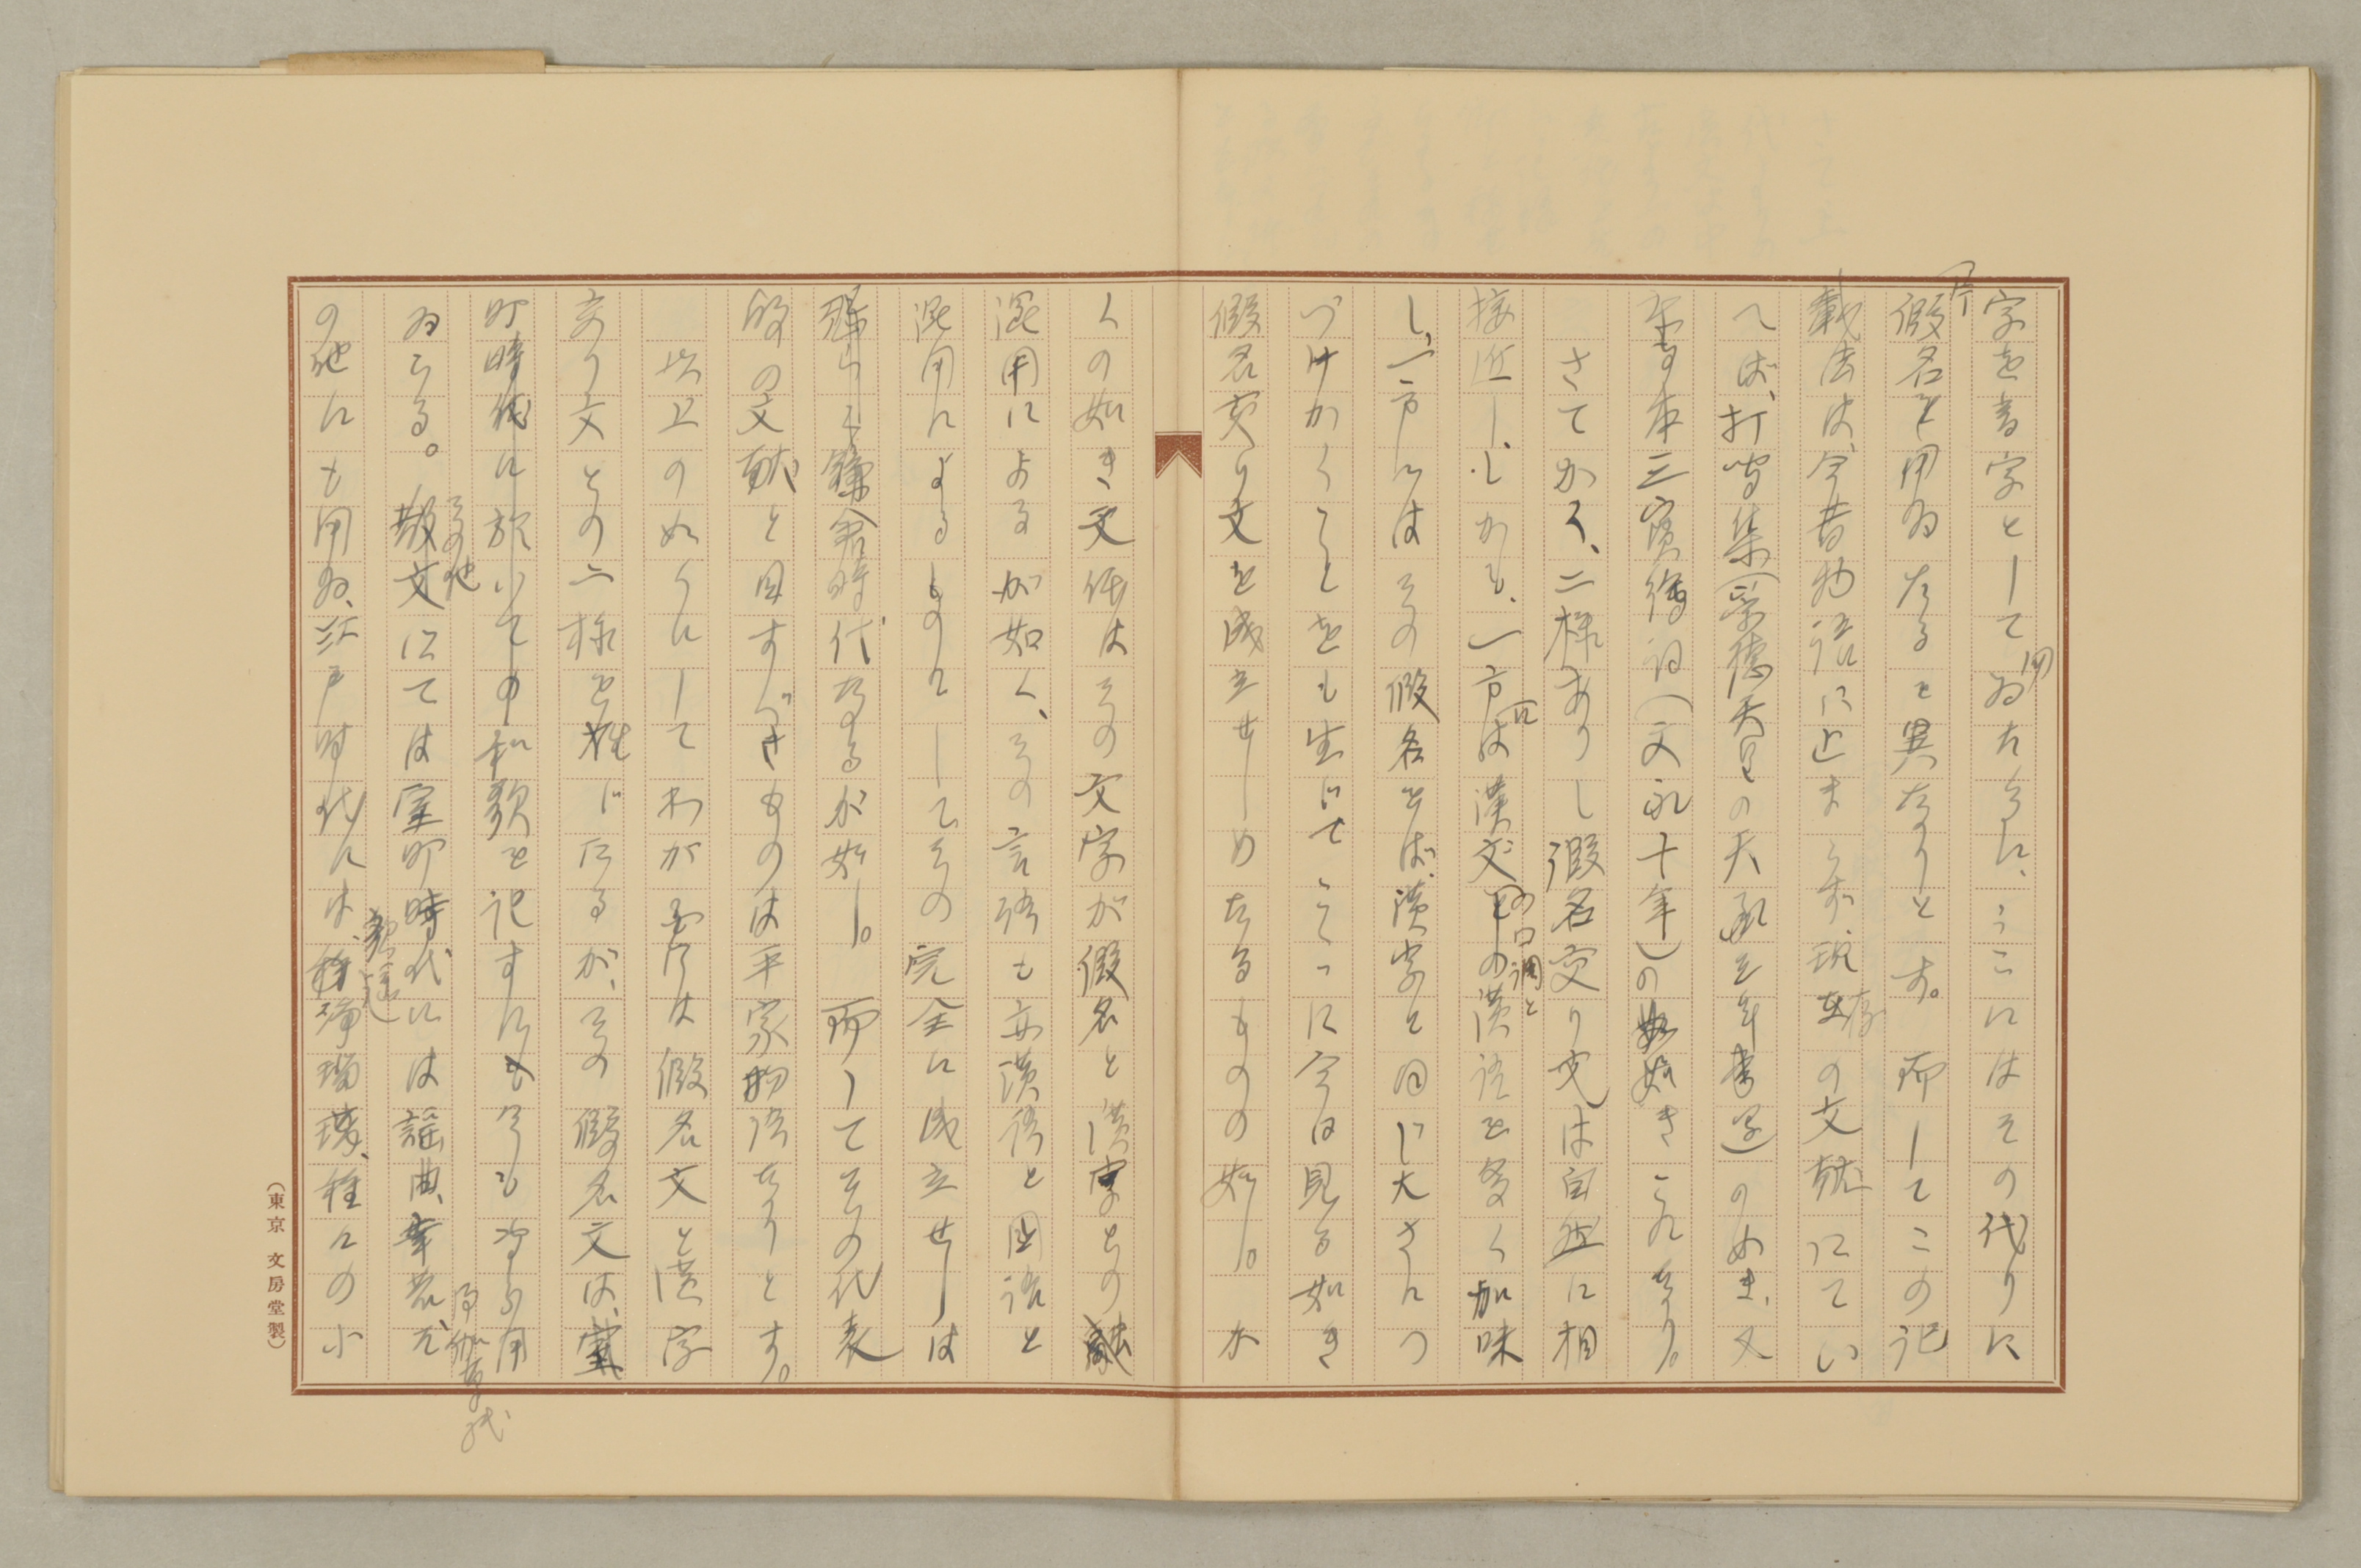 字を音字として用ゐたるに、こゝにはその代りに
片假名を用ゐたるを異なりとす。而してこの記
載法は、今昔物語に止まらず、現存の文献にてい
へば、打聞集(崇德天皇の天承三年書写)のめき、又
本三宝繪詞(文永十年)の如きこれなり。
さてかく、二様ありし假名交り文は自然に相
接近し、しかも、一方には漢文の口調と漢語を多く加味
し、一方には その假名をば、漢字と同じ大さにつ
づけかくことをも生じてこゝに今日見る如き
假名交り文を成立せしめたるものの如し。か
くの如き文体はその文字が假名と漢字との
混用によるが如く、その言語も亦漢語と国語と
混用によるものにしてその完全に成立せしは
鎌倉時代なるが如し。而してその代表
的の文献と目すべきものは平家物語なりとす。
以上のめくにしてわが国には假名文と漢字
交り文との二様を生じたるが、その假名文は、室
町時代に於いても和歌を記すにも今も尚ら用
ゐらる。その他散文にては室町時代には謡曲、幸若、御伽草紙
の他にも用ゐ、江戸時代には、淨瑠璃、種々の小
(東京 文房堂製)